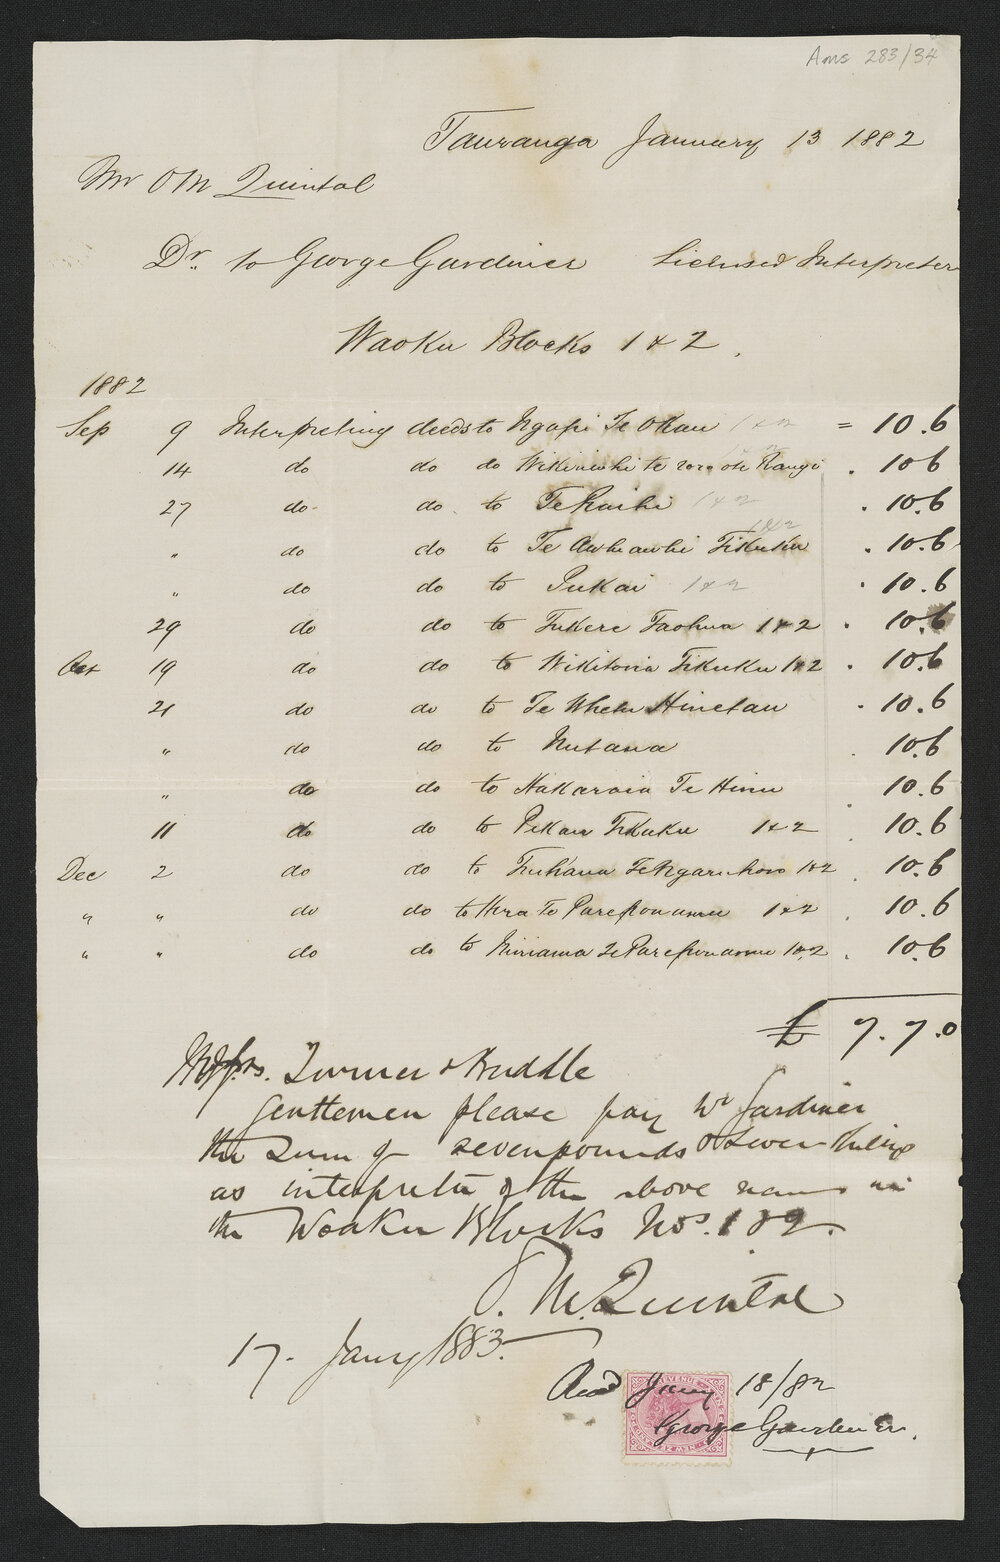 Ams 283/34
Tauranga January 13 1882
Mr O M Quintal
Dr. to George Gardiner Licensed Interpreter
Waoku Blocks 1 & 2.
1882
Sep 9 Interpreting deeds to Ngapi Te Okau 1 & 2 = 10.6
14 do do do Wikiriwhi te Rangi 2 . 10 6
27 do do. to Te Raihi 1 & 2 . 10.6
" do do to Te Awhiawhi Tikuku 1 & 2 . 10.6
" do do to Pukai 1 & 2 . 10.6
29 do do to Tukere Taohua 1 & 2 . 10.6
Oct 19 do do to Wikitoria Tikuku 1 & 2 . 10.6
21 do do to Te Whetu Hinetau . 10.6
" do do to Nutana . 10.6
" do do to Hakaraia Te Hinu 10.6
11 do do to Pikau Tikuku 1 & 2 . 10.6
Dec 2 do do to Tuhana Te Ngaruhoro 1 & 2 . 10.6
" " do do to Hira Te Parepounamu 1 & 2 . 10.6
" " do do to Niniama Te Parepounamu 1 & 2 . 10.6
£ 7.7.0
Messrs. Turner & Buddle
Gentlemen please pay Mr Gardiner
the Sum of seven pounds & seven shillings
as interpreter of the above names in
the Woaku Blocks Nos. 1 & 2.
O. M. Quintal
17. Jany 1883.
Recd Jany 18/82
George Gardiner.
REVENUE
NEW ZEALAND